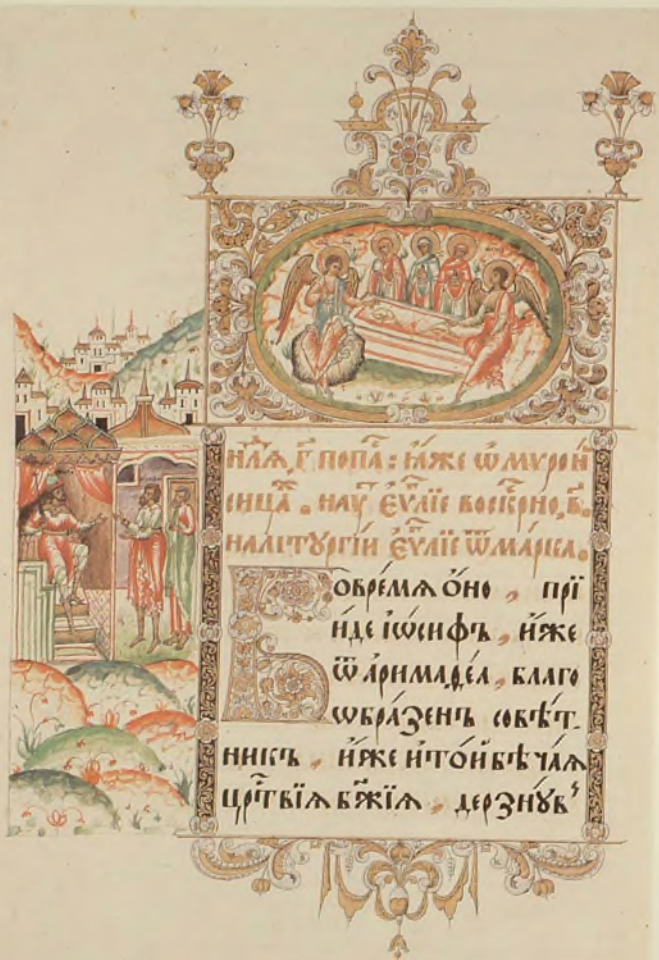 НЛѦ, Г҃ ПОПА: ꙖЖЕ Ѡ МѴРОН
СИЦА. НАУ ЕѴЛІЕ ВОСКРНО, В҃.
НАЛІТꙊРГІИ ЕѴЛІЕ Ѿ МАРКА.
ВОВРЕМѦ О́НО, ПРІ
ИДЕ ІѠСИФЪ, И́ЖЕ
Ѿ АРИМАѲЕА, БЛАГО
ѠБРА́ЗЕНЪ СОВѢТ
НИКЪ, И́ЖЕ И ТО́Й БѢ ЧА́Ѧ
ЦРТВІѦ БЖІѦ, ДЕРЗНꙊВЪ